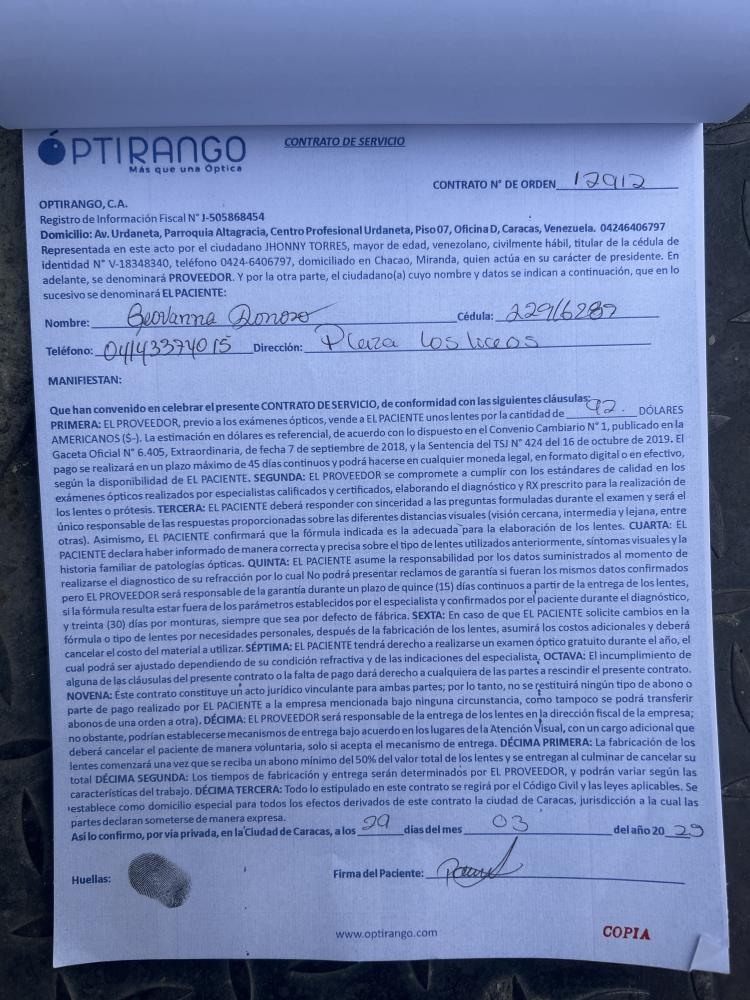 ÓPTIRANGO
Más que una Óptica
CONTRATO DE SERVICIO
CONTRATO N° DE ORDEN 12912
OPTIRANGO, C.A.
Registro de Información Fiscal N° J-505868454
Domicilio: Av. Urdaneta, Parroquia Altagracia, Centro Profesional Urdaneta, Piso 07, Oficina D, Caracas, Venezuela. 04246406797
Representada en este acto por el ciudadano JHONNY TORRES, mayor de edad, venezolano, civilmente hábil, titular de la cédula de
identidad N° V-18348340, teléfono 0424-6406797, domiciliado en Chacao, Miranda, quien actúa en su carácter de presidente. En
adelante, se denominará PROVEEDOR. Y por la otra parte, el ciudadano(a) cuyo nombre y datos se indican a continuación, que en lo
sucesivo se denominará EL PACIENTE:
Nombre: Geovanna Donoso Cédula: 22916289
Teléfono: 04143374015 Dirección: Plaza los liceos
MANIFIESTAN:
Que han convenido en celebrar el presente CONTRATO DE SERVICIO, de conformidad con las siguientes cláusulas:
PRIMERA: EL PROVEEDOR, previo a los exámenes ópticos, vende a EL PACIENTE unos lentes por la cantidad de 92. DÓLARES
AMERICANOS ($-). La estimación en dólares es referencial, de acuerdo con lo dispuesto en el Convenio Cambiario N° 1, publicado en la
Gaceta Oficial N° 6.405, Extraordinaria, de fecha 7 de septiembre de 2018, y la Sentencia del TSJ N° 424 del 16 de octubre de 2019. El
pago se realizará en un plazo máximo de 45 días continuos y podrá hacerse en cualquier moneda legal, en formato digital o en efectivo,
según la disponibilidad de EL PACIENTE. SEGUNDA: EL PROVEEDOR se compromete a cumplir con los estándares de calidad en los
exámenes ópticos realizados por especialistas calificados y certificados, elaborando el diagnóstico y RX prescrito para la realización de
los lentes o prótesis. TERCERA: EL PACIENTE deberá responder con sinceridad a las preguntas formuladas durante el examen y será el
único responsable de las respuestas proporcionadas sobre las diferentes distancias visuales (visión cercana, intermedia y lejana, entre
otras). Asimismo, EL PACIENTE confirmará que la fórmula indicada es la adecuada para la elaboración de los lentes. CUARTA: EL
PACIENTE declara haber informado de manera correcta y precisa sobre el tipo de lentes utilizados anteriormente, síntomas visuales y la
historia familiar de patologías ópticas. QUINTA: EL PACIENTE asume la responsabilidad por los datos suministrados al momento de
realizarse el diagnostico de su refracción por lo cual No podrá presentar reclamos de garantía si fueran los mismos datos confirmados
pero EL PROVEEDOR será responsable de la garantía durante un plazo de quince (15) días continuos a partir de la entrega de los lentes,
si la fórmula resulta estar fuera de los parámetros establecidos por el especialista y confirmados por el paciente durante el diagnóstico,
y treinta (30) días por monturas, siempre que sea por defecto de fábrica. SEXTA: En caso de que EL PACIENTE solicite cambios en la
fórmula o tipo de lentes por necesidades personales, después de la fabricación de los lentes, asumirá los costos adicionales y deberá
cancelar el costo del material a utilizar. SÉPTIMA: EL PACIENTE tendrá derecho a realizarse un examen óptico gratuito durante el año, el
cual podrá ser ajustado dependiendo de su condición refractiva y de las indicaciones del especialista. OCTAVA: El incumplimiento de
alguna de las cláusulas del presente contrato o la falta de pago dará derecho a cualquiera de las partes a rescindir el presente contrato.
NOVENA: Este contrato constituye un acto jurídico vinculante para ambas partes; por lo tanto, no se restituirá ningún tipo de abono o
parte de pago realizado por EL PACIENTE a la empresa mencionada bajo ninguna circunstancia, como tampoco se podrá transferir
abonos de una orden a otra). DÉCIMA: EL PROVEEDOR será responsable de la entrega de los lentes en la dirección fiscal de la empresa;
no obstante, podrían establecerse mecanismos de entrega bajo acuerdo en los lugares de la Atención Visual, con un cargo adicional que
deberá cancelar el paciente de manera voluntaria, solo si acepta el mecanismo de entrega. DÉCIMA PRIMERA: La fabricación de los
lentes comenzará una vez que se reciba un abono mínimo del 50% del valor total de los lentes y se entregan al culminar de cancelar su
total DÉCIMA SEGUNDA: Los tiempos de fabricación y entrega serán determinados por EL PROVEEDOR, y podrán variar según las
características del trabajo. DÉCIMA TERCERA: Todo lo estipulado en este contrato se regirá por el Código Civil y las leyes aplicables. Se
establece como domicilio especial para todos los efectos derivados de este contrato la ciudad de Caracas, jurisdicción a la cual las
partes declaran someterse de manera expresa.
Así lo confirmo, por vía privada, en la Ciudad de Caracas, a los 29 días del mes 03 del año 20 25
Huellas: Firma del Paciente:
www.optirango.com
COPIA